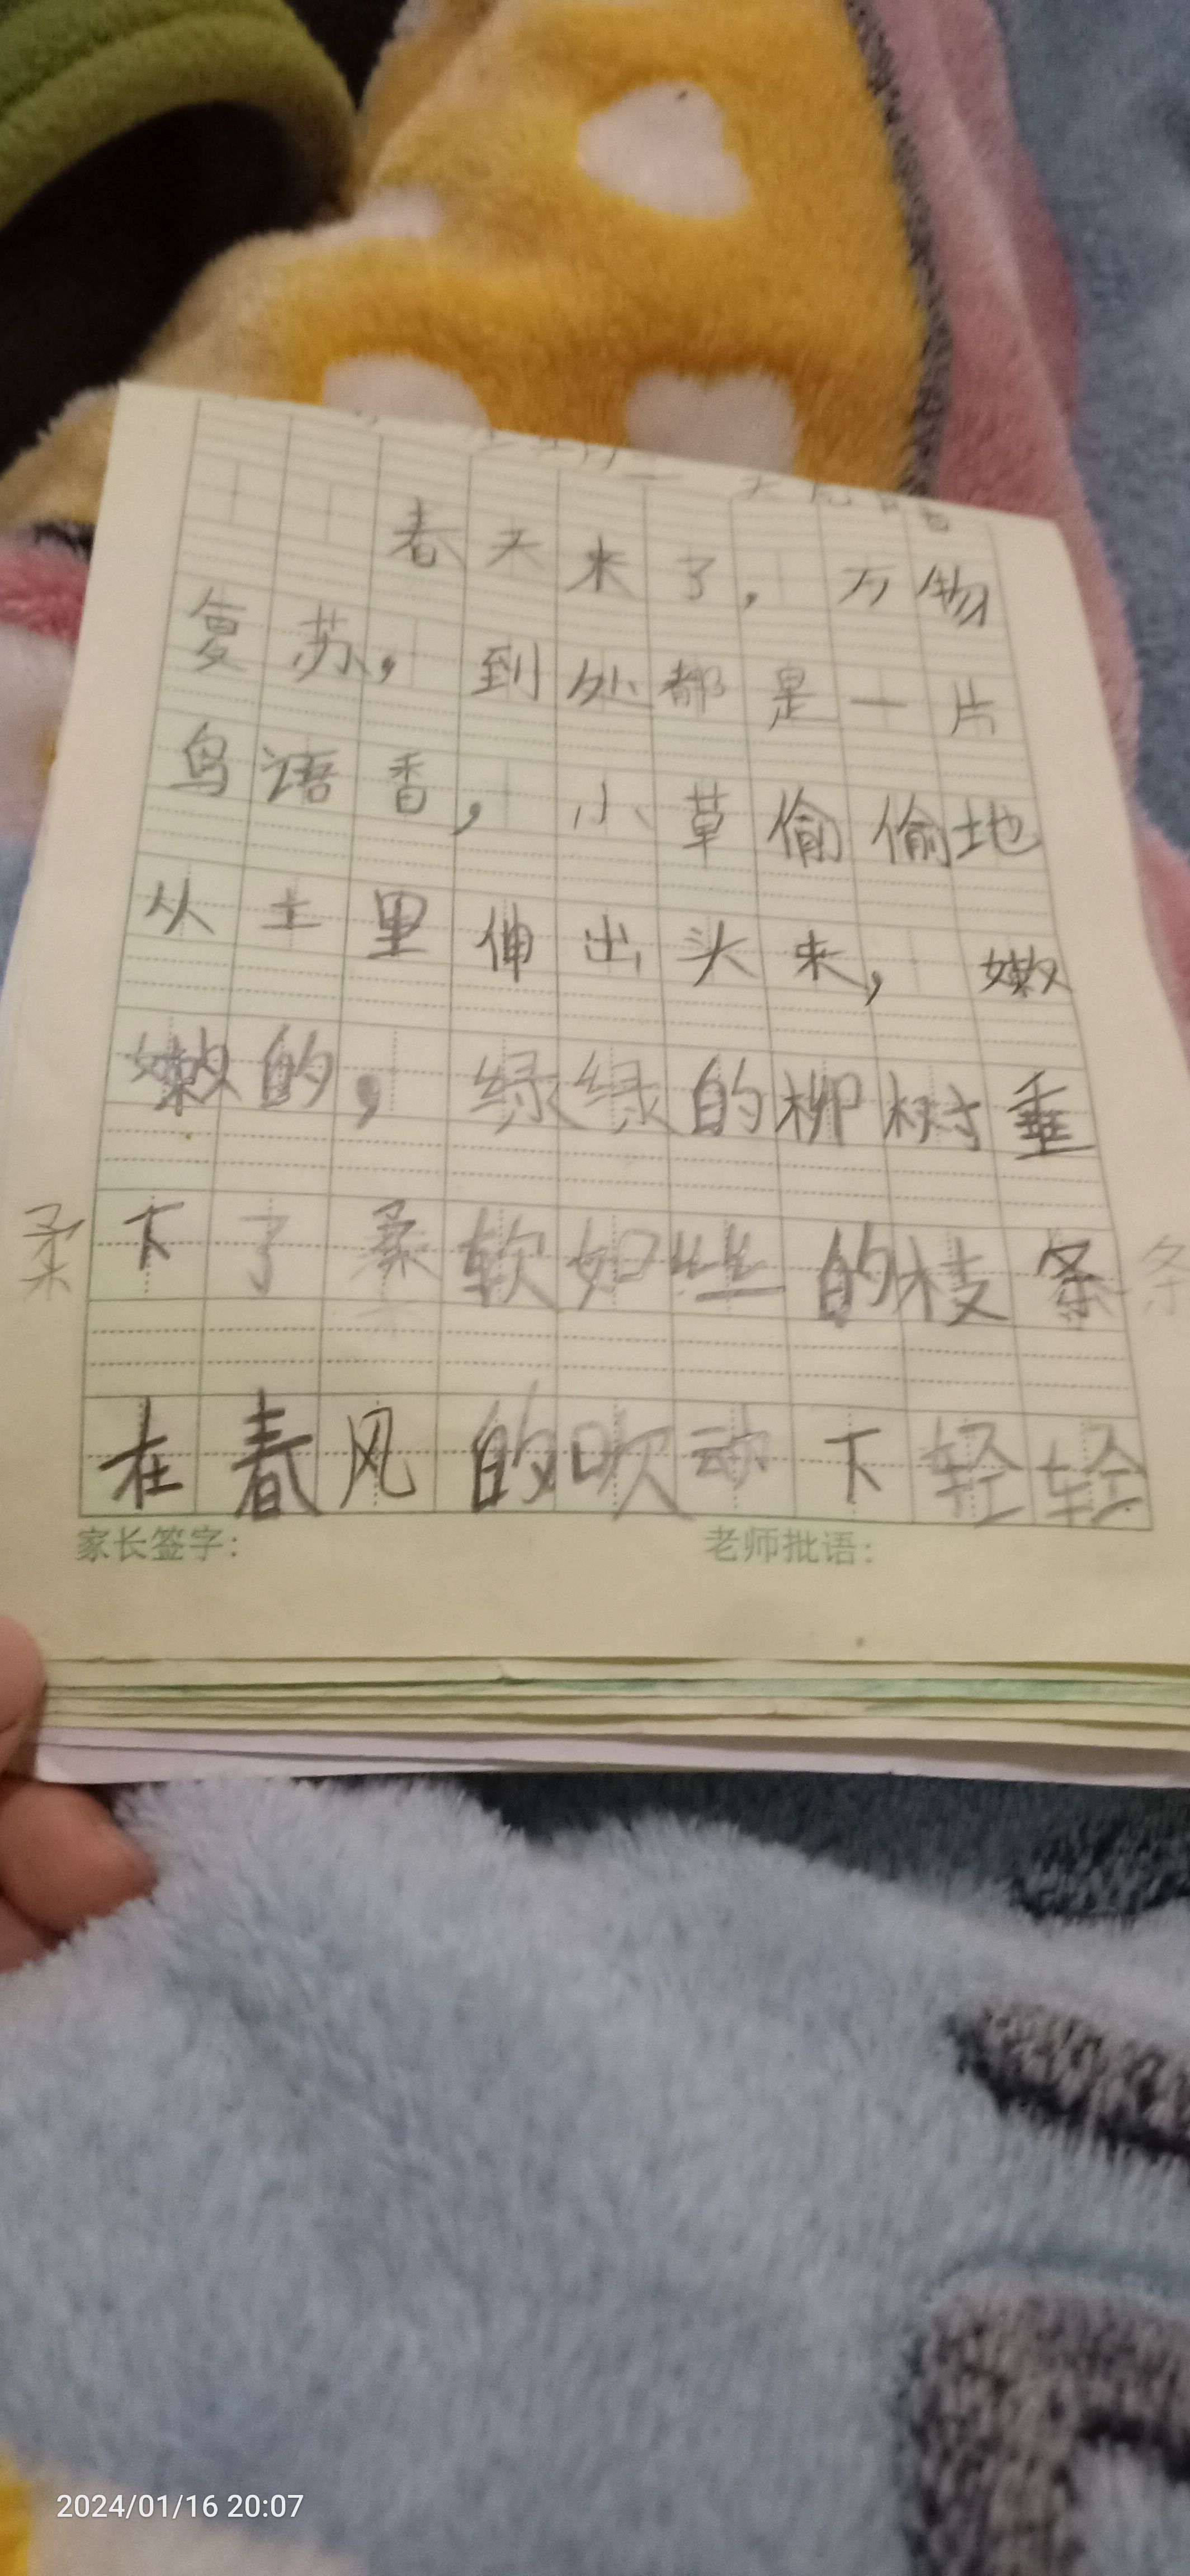 春天来了，万物
复苏，到处都是一片
鸟语香，小草偷偷地
从土里伸出头来，嫩
嫩的，绿绿的柳树垂
柔
下了柔软如丝的枝条
条
在春风的吹动下轻轻
家长签字： 老师批语：
2024/01/16 20:07